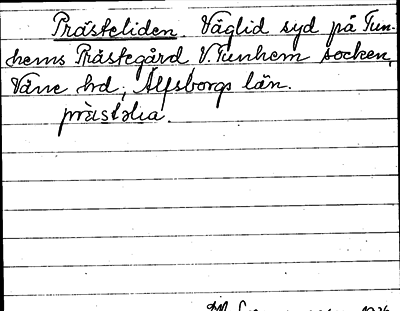 Prästeliden. Väglid syd på Tun-
hems Prästegård, V. Tunhem socken,
Väne hd, Älfsborgs län.